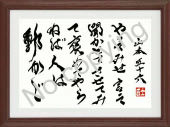 山本五十六
やってみせ 言って
聞かせて させてみ
て 褒めてやら
ねば 人は
動かじ